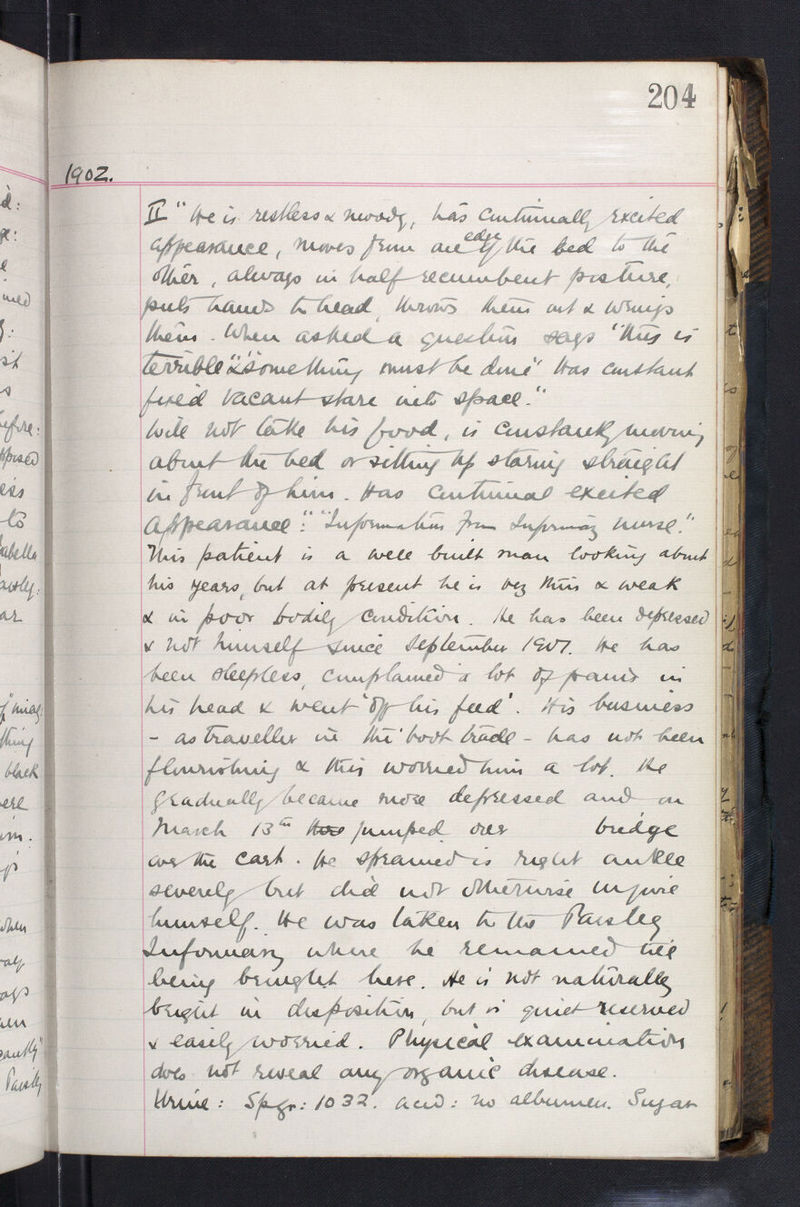 204
1902.
II "He is restless & moody, has continually excited
appearance, moves from one edge of the bed to the
other, always in half recumbent posture,
puts hands to head, throws them out & wrings
them. When asked a question says "this is
terrible" & "something must be done" Has constant
fixed vacant stare into space."
Will not take his food, is constantly moving
about the bed or sitting up staring straight
in front of him. Has continual excited
appearance": "Information from Infirmary nurse."
This patient is a well built man looking about
his years, but at present he is very thin & weak
& in poor bodily condition. He has been depressed
& not himself since September 1901. He has
been sleepless, complained a lot of pains in
his head & went 'off his feed'. His business
- as traveller in the boot trade - has not been
flourishing & this worried him a lot. He
gradually became more depressed and on
March 13th jumped over bridge
over the Cart. He sprained is right ankle
severely but did not otherwise injure
himself. He was taken to the Paisley
Infirmary where he remained till
being brought here. He is not naturally
bright in disposition, but is quiet reserved
& easily worried. Physical examination
does not reveal any organic disease.
Urine: Sp.gr: 1032. acid: no albumen. Sugar